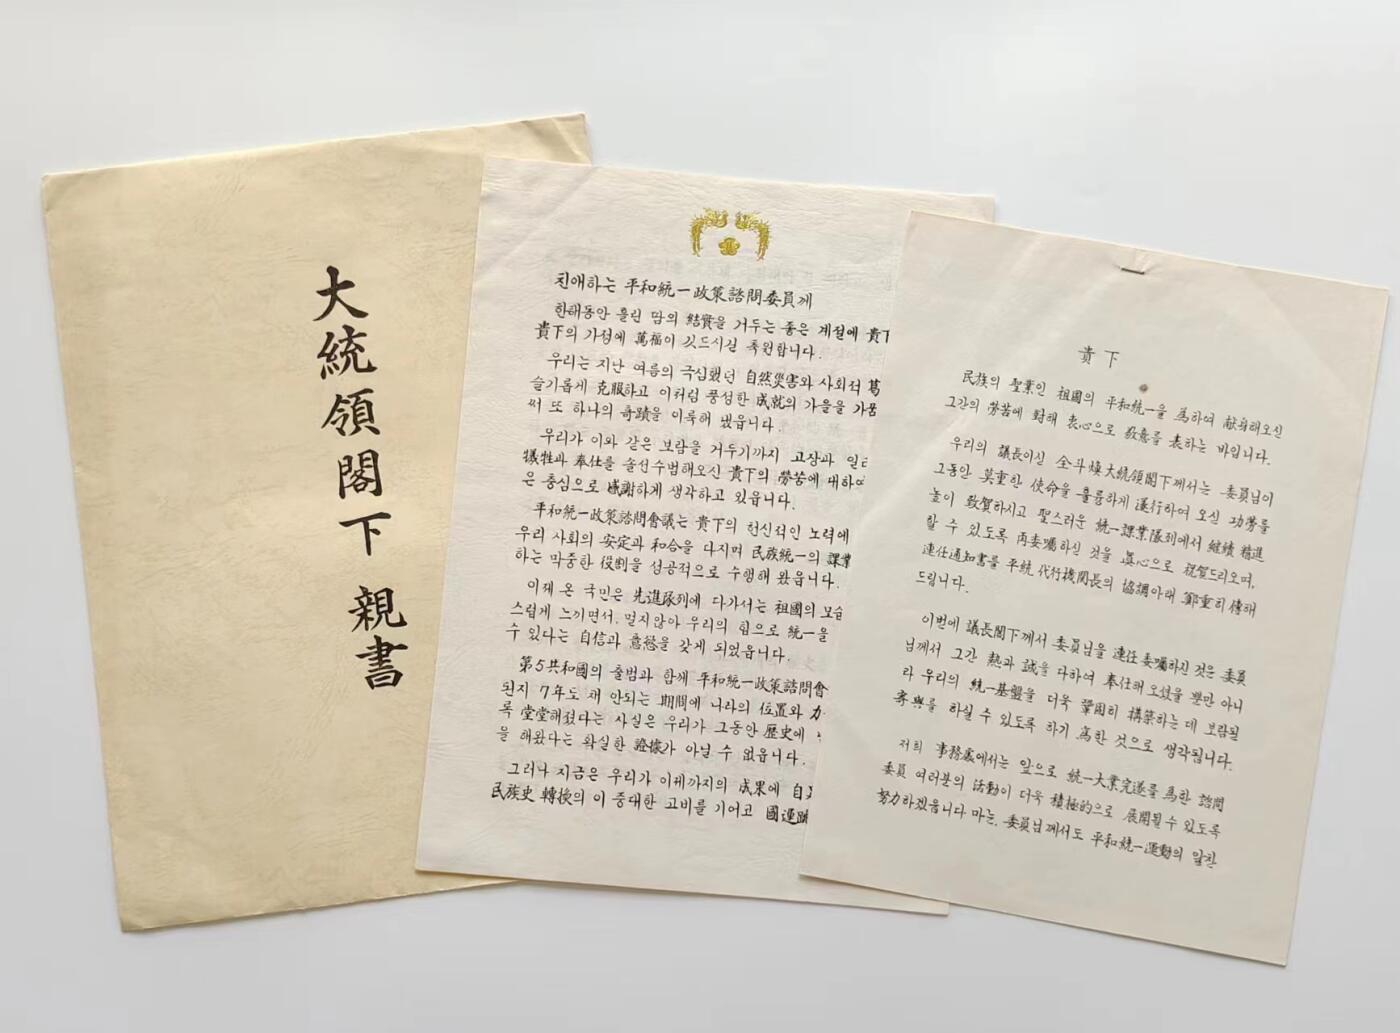 大統領閣下 親書
친애하는 平和統一政策諮問委員께
한해동안 흘린 땀의 結實을 거두는 좋은 계절에 貴下
貴下의 가정에 萬福이 깃드시길 축원합니다.
우리는 지난 여름의 극심했던 自然災害와 사회적 葛
슬기롭게 克服하고 이처럼 풍성한 成就의 가을을 가꿈
써 또 하나의 奇蹟을 이룩해 냈읍니다.
우리가 이와 같은 보람을 거두기까지 고장과 일터
犧牲과 奉仕를 솔선수범해오신 貴下의 勞苦에 대하여
은 충심으로 感謝하게 생각하고 있읍니다.
平和統一政策諮問會議는 貴下의 헌신적인 노력에
우리 사회의 安定과 和合을 다지며 民族統一의 課業
하는 막중한 役割을 성공적으로 수행해 왔읍니다.
이제 온 국민은 先進隊列에 다가서는 祖國의 모습
스럽게 느끼면서, 멀지않아 우리의 힘으로 統一을
수 있다는 自信과 意慾을 갖게 되었읍니다.
第5共和國의 출범과 함께 平和統一政策諮問會
된지 7年도 채 안되는 期間에 나라의 位置와 力
록 堂堂해졌다는 사실은 우리가 그동안 歷史에
을 해왔다는 확실한 證據가 아닐 수 없읍니다.
그러나 지금은 우리가 이제까지의 成果에 自
民族史 轉換의 이 중대한 고비를 기어코 國運
貴下
民族의 聖業인 祖國의 平和統一을 爲하여 献身해오신
그간의 勞苦에 對해 衷心으로 敬意를 表하는 바입니다.
우리의 議長이신 全斗煥大統領閣下께서는 委員님이
그동안 莫重한 使命을 훌륭하게 遂行하여 오신 功勞를
높이 致賀하시고 聖스러운 統一課業隊列에서 継續 精進
할 수 있도록 再委囑하신 것을 眞心으로 祝賀드리오며,
連任通知書를 平統 代行機関長의 協調아래 鄭重히 傳해
드립니다.
이번에 議長閣下께서 委員님을 連任 委囑하신 것은 委員
님께서 그간 熱과 誠을 다하여 奉仕해 오셨을 뿐만 아니
라 우리의 統一基盤을 더욱 鞏固히 構築하는 데 보람될
寄與를 하실 수 있도록 하기 爲한 것으로 생각됩니다.
저희 事務處에서는 앞으로 統一大業完遂를 爲한 諮問
委員 여러분의 活動이 더욱 積極的으로 展開될 수 있도록
努力하겠읍니다 마는, 委員님께서도 平和統一運動의 알찬